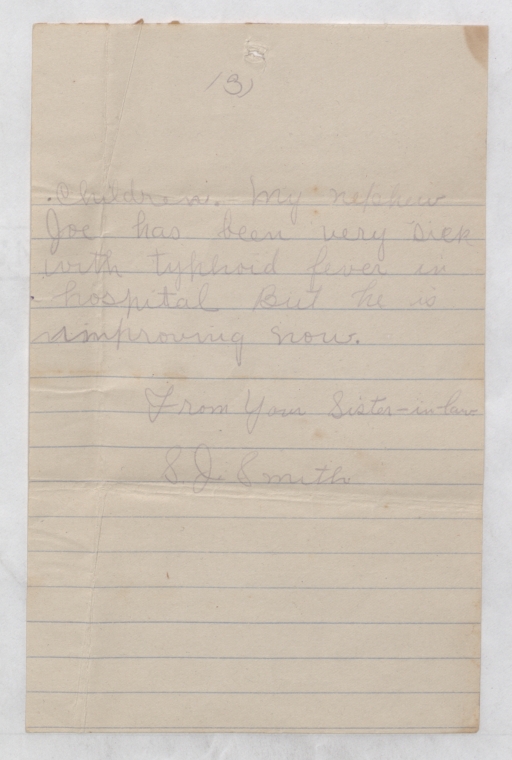 (3)
Children. My nephew
Joe has been very sick
with typhoid fever in
hospital But he is
improving now.
From Your Sister-in-law
S. J. Smith